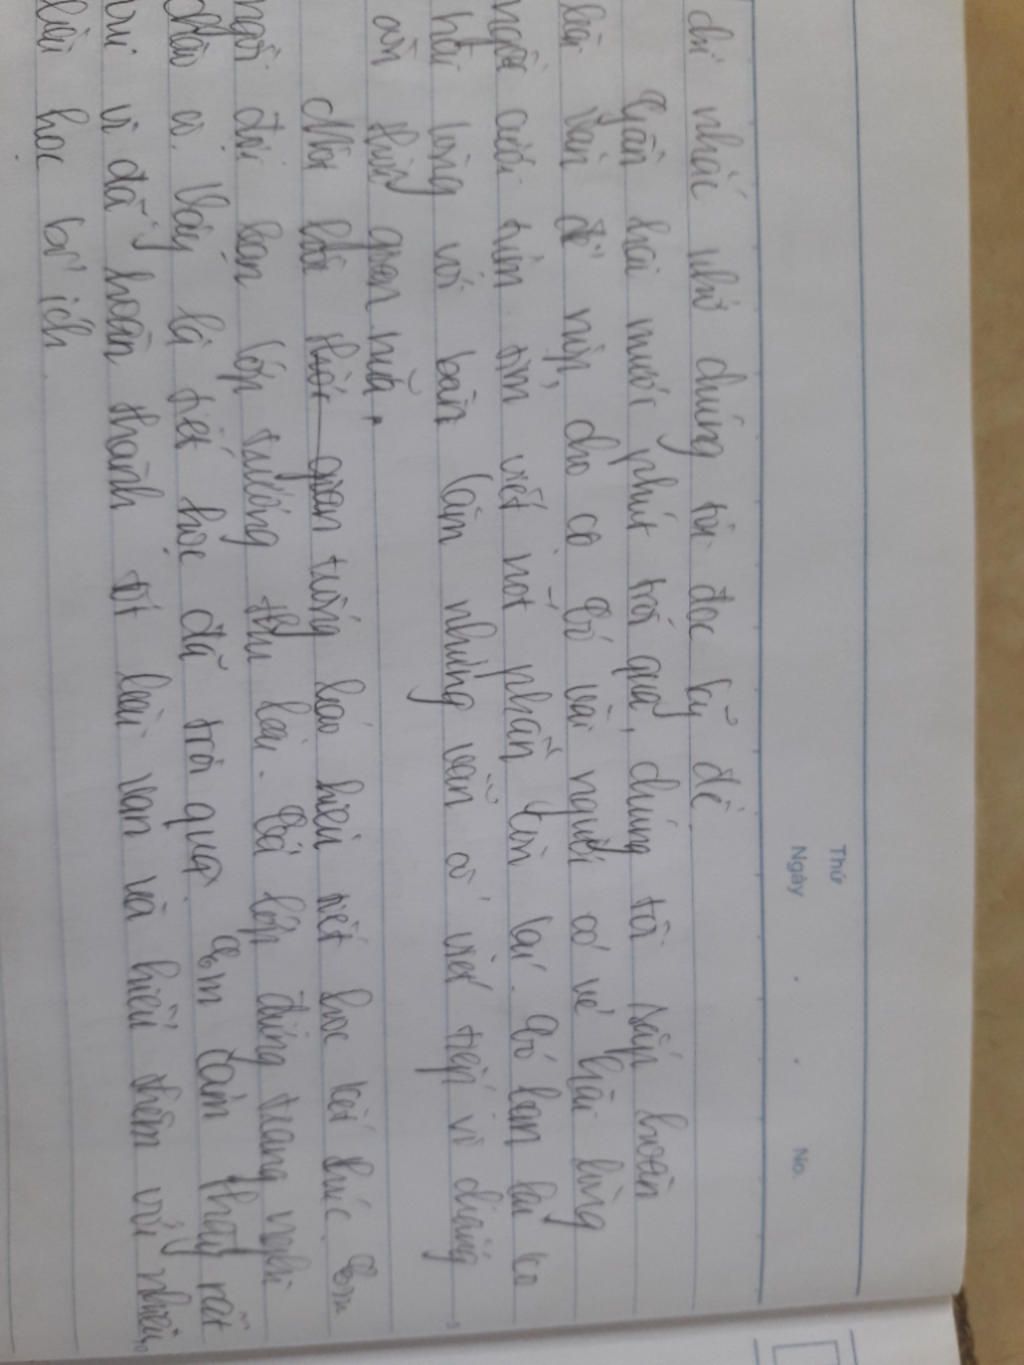 Thứ
Ngày
No.
chỉ nhắc nhở chúng tôi đọc kỹ đề.
Gần hai mươi phút trôi qua, chúng tôi sắp hoàn
bài văn để nộp cho cô. Có vài người có vẻ hài lòng
người cười tủm tỉm viết nốt phần còn lại. Có bạn lại ko
hài lòng với bản làm nhưng vẫn cố viết tiếp vì chẳng
còn thời gian nữa.
Một hồi thời gian trống báo hiệu tiết học kết thúc. Em
ngồi đợi bạn lớp trưởng thu bài. Cả lớp đứng trang nghiêm
chào cô. Vậy là tiết học đã trôi qua. Em cảm thấy rất
vui vì đã hoàn thành tốt bài văn và hiểu thêm với nhiều
bài học bổ ích.